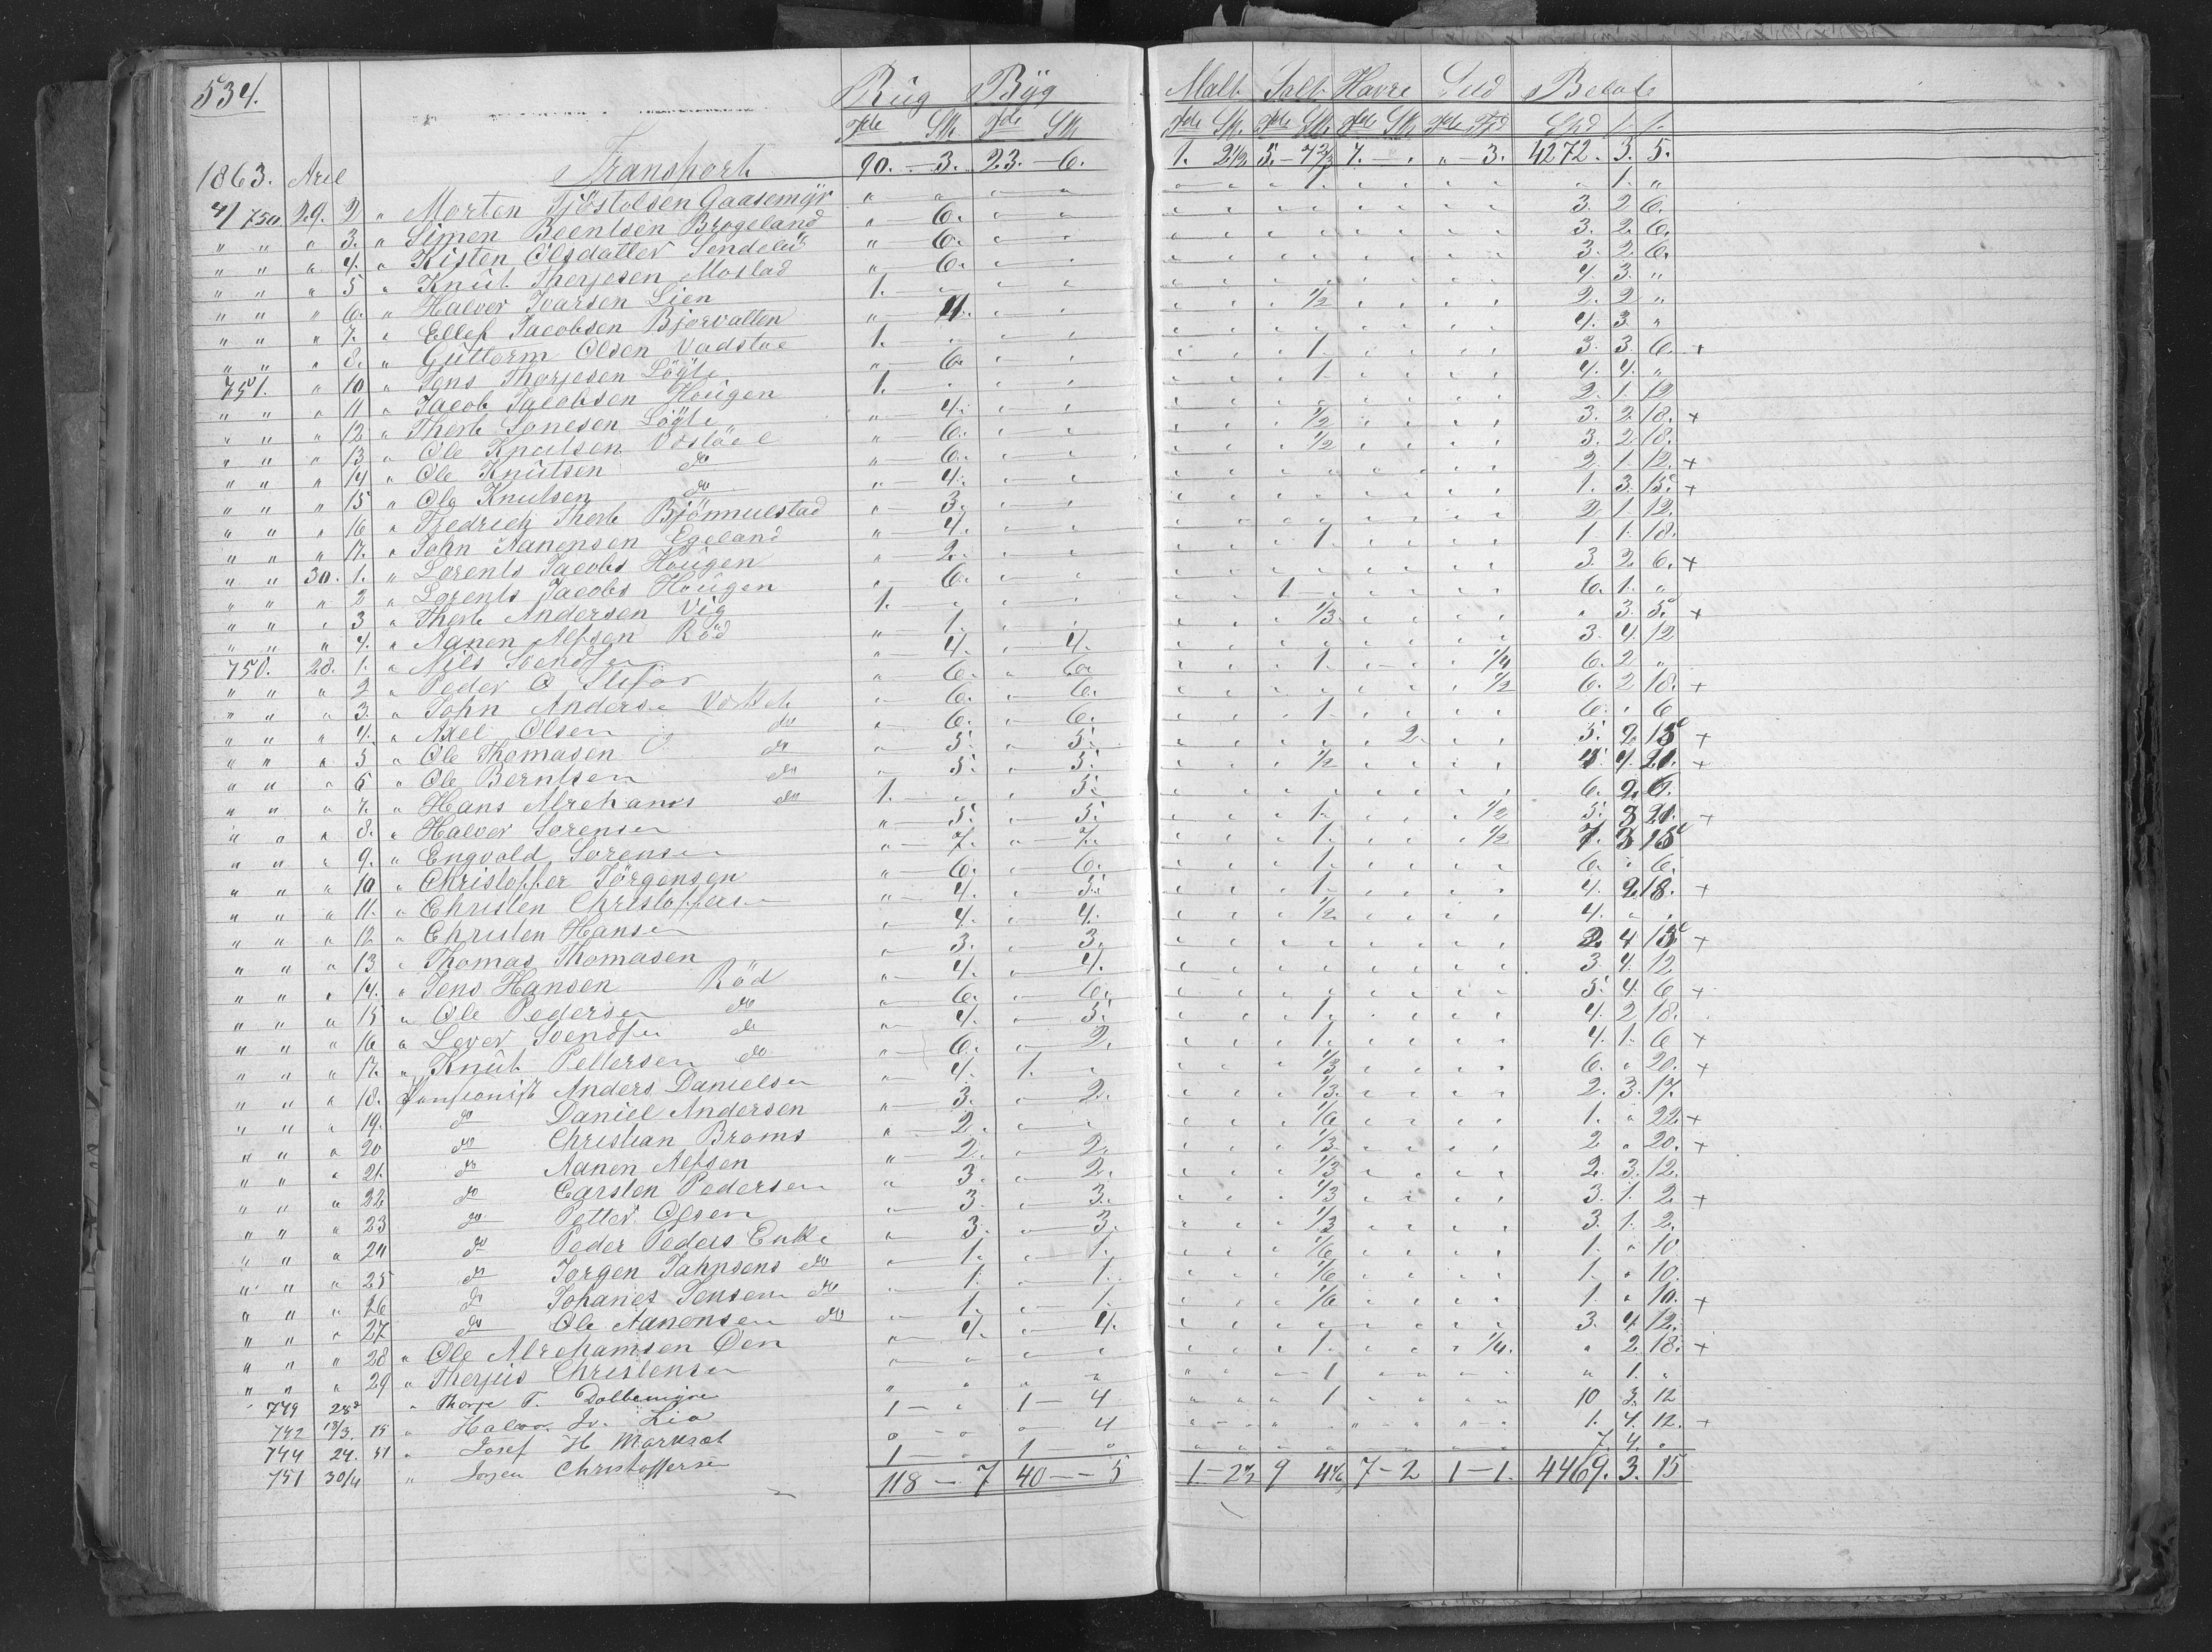 534. Rüg Byg Malt Salt Havre Sild Beløb
Tdr Sk Tdr Sk Tdr Sk. Tdr Sk Tdr Sk Tdr Fjd Spd
1863. Transport 90. — 3. 23. — 6. 1. 2 1/2 5. — 7 2/3 7. — " — 3. 4272. 3. 5.
750. 29. 2 " Morten Tjöstolsen Gaasemyr " " " " " " " 1. " " " " " " 1. "
" " " 3. " Simen Beentsen Brogeland " 6. " " 3. 2 6.
" " " 4. " Kisten Olsdatter " 6. " " 3. 2. 6.
" " " 5 " Knüt Therjesen Moslad " 6. " " 3. 2 6.
" " " 6. " Halvor Ivarsen Lien 1. " " " 4. 3. "
" " " 7. " Ellef Jacobsen Bjorvatten " 4. " " 1/2 2. 2 "
" " " 8. " Guttorm Olsen Vadstae 1. " " " 4. 3. "
751. " 10 " Jens Thorjesen Lögte " 6. " " 1. 3. 3. 6. +
" " " 11 " Jacob Jacobsen Hougen 1. " " " 1. 4. 4. "
" " " 12 " Therb Lonesen Lögte " 4. " " 2. 1. 12
" " " 13 " Ole Knutsen " 6. " " 1/2 3. 2 18. +
" " " 14 " Ole Knutsen do " 6. " " 1/2 3. 2 18.
" " " 15 " Ole Knutsen do " 4. " " 2. 1. 12. +
" " " 16 " Fredrich Therb " 3. " " 1. 3. 15. +
" " " 17. " John Aanensen Egeland " 4. " " 2 1. 12.
" " 30. 1. " Lorents Jacobs Hougen " 2. " " 1. 1 1. 18.
" " " 2 " Lorents Jacobs Hougen " 6. " " 3. 2. 6. +
" " " 3 " Therb Andersen Vig 1. " " " 1 6. 1. "
" " " 4. " Aanen Alfsen Röd " 1. " " 1/3 " 3. 5. +
750. 28. 1. " Nils Svendsen " 4. " 4. 3. 4. 12
" " " 2 " Peder O " 6. " 6. 1. 1/4 6. 2 "
" " " 3. " John Andersen " 6. " 6. 1/2 6. 2 18. +
" " " 4. " Axel Olsen do " 6. " 6. 1. 6. " 6
" " " 5 " Ole Thomasen do " 5. " 5. 2. 5. 2 15 +
" " " 6 " Ole Berntsen do " 5. " 5. 1/2 4. 4. 21. +
" " " 7. " Hans Abrehams do 1. " " 5. 6. 2. 6.
" " " 8. " Halvor Sorensen " 5. " 5. 1. 1/2 5. 3 21. +
" " " 9. " Engvold Sorensen " 7. " 7. 1. 1/2 7. 3 15
" " " 10 " Christoffer Jörgensen " 6. " 6. 1. 6. " 6.
" " " 11. " Christen Christoffersen " 4. " 5. 1. 4. 2 18. +
" " " 12 " Christen Hansen " 4. " 4. 1/2 4. " "
" " " 13 " Thomas Thomasen " 3. " 3. 2. 4 15 +
" " " 14. " Jens Hansen Röd " 4. " 4. 3. 4. 12
" " " 15 " Ole Pedersen do " 6. " 6. 5. 4. 6 +
" " " 16 " Lever Svendsen do " 4. " 5. 1. 4. 2 18.
" " " 17. " Knüt Pettersen do " 6. " 2. 1. 4. 1. 6 +
" " " 18. Pensionist Anders Danielsen " 4. 1. " 1/3 6. " 20. +
" " " 19. do Daniel Andersen " 3. " 2. 1/3. 2. 3. 17.
" " " 20 do Christian Broms " 2. " " 1/6 1. " 22 +
" " " 21. do Aanen Alfsen " 2. " 2. 1/3 2 " 20. +
" " " 22 do Carsten Pedersen " 3. " 2. 1/3 2. 3. 12.
" " " 23 do Petter Olsen " 3. " 3. 1/3 3. 1. 2 +
" " " 24 do Peder Peders Enke " 3. " 3. 1/3 3. 1. 2.
" " " 25 do Jorgen Jahnsens do " 1. " 1. 1/6 1. " 10
" " " 26 do Johanes Jensens do " 1. " 1. 1/6 1. " 10.
" " " 27 do Ole Aanensen do " 1. " 1. 1/6 1. " 10. +
" " " 28 " Ole Abrehamsen Öen " 4. " 4. 3. 4 12.
" " " 29 " Therjus Christensen " " " " 1. 1/4. " 2 18. +
749 28 " Thorje T. " " " " 1 " 1. "
742 13/3. 15 " Halvor Iv. Lia 1 — " 1 — 4 1 10 3. 12
744 24. 51 " Josef H " — " " 4 1. 4. 12. +
751 30/4 " Christoffersen 1 — " 1 " 7. 4. "
118 — 7 40 — 5 1 — 2 1/2 9 4 1/6 7 — 2 1 — 1. 4469. 3. 15